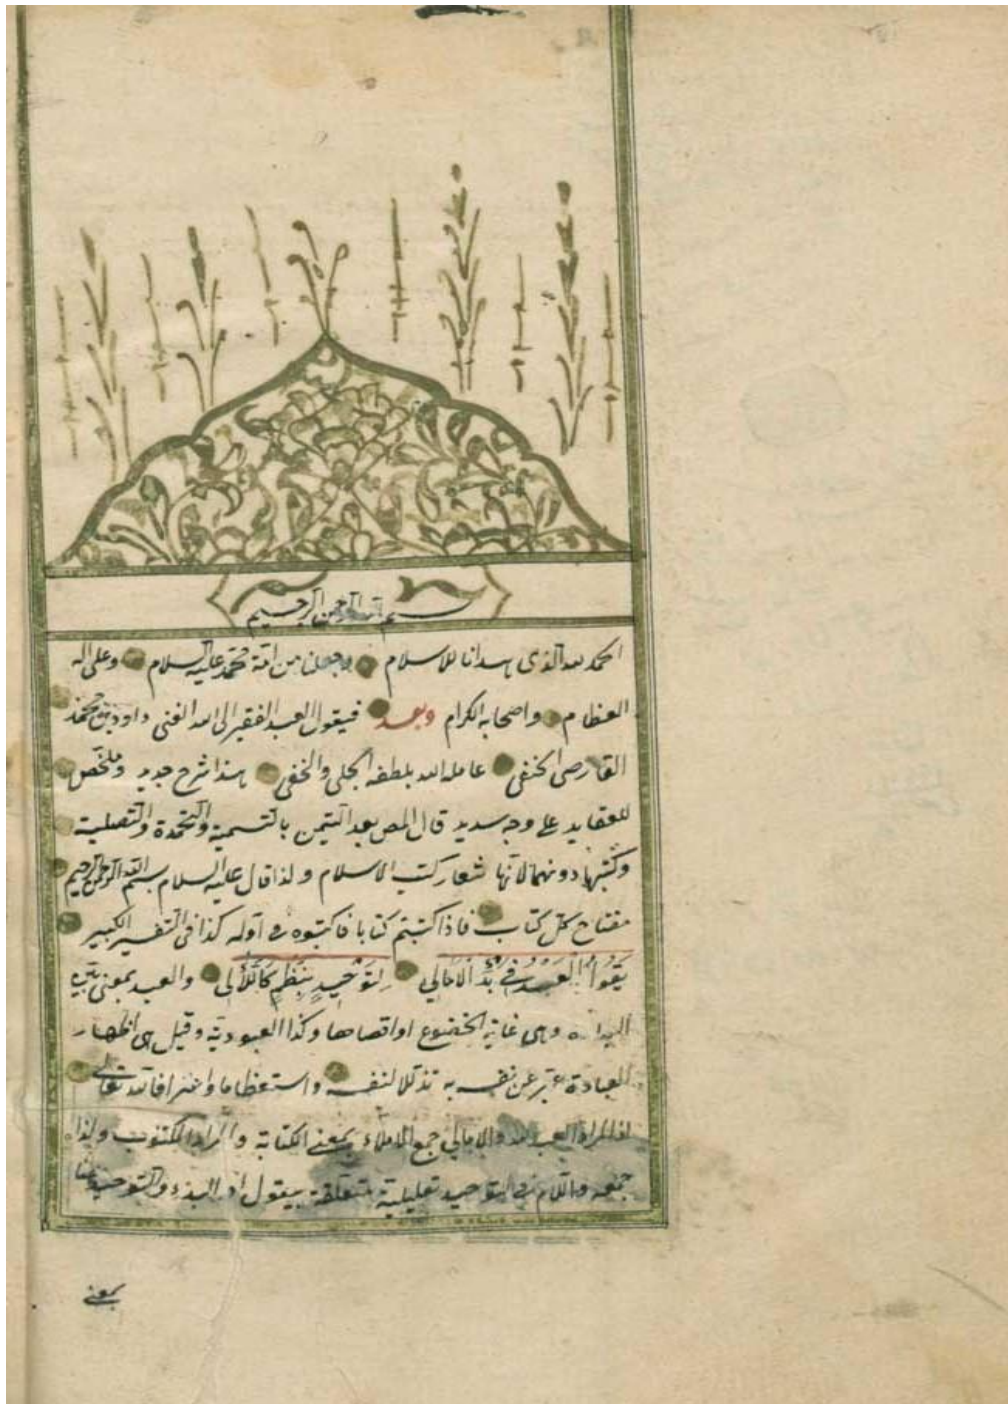 بسم الله الرحمن الرحيم
الحمد لله الذى هدانا للاسلام وجعلنا من امة محمد عليه السلام وعلى اله
العظام واصحابه الكرام وبعد فيقول العبد الفقير الى الله الغنى داود بن محمد
القارصى الحنفى عامله الله بلطفه الجلى والخفى هذا شرح جديد وملخص
للعقايد على وجه سديد قال المص بعد التيمن بالتسمية والتحمدة والتصلية
وكتبها دونهما لانها شعار كتب الاسلام ولذا قال عليه السلام بسم الله الرحمن الرحيم
مفتاح كل كتاب فاذا كتبتم كتابا فاكتبوه فى اوله كذا فى التفسير الكبير
يَقُولُ الْعَبْدُ فِي بَدْءِ الْأَمَالِي لِتَوْحِيدٍ بِنَظْمٍ كَاللَّآلِي والعبد بمعنى
وهى غاية الخضوع او اقصاها وكذا العبودية وقيل هى اظهار
العبادة عبر عن نفسه به تذللا لنفسه واستعظاما واعترافا لله تعالى
اذ المراد العبد لله والامالي جمع الاملاء بمعنى الكتابة والمراد المكتوب ولذا
جمعه واللام فى لتوحيد تعليلية متعلقة بيقول او البدء والتوحيد
بمعنى